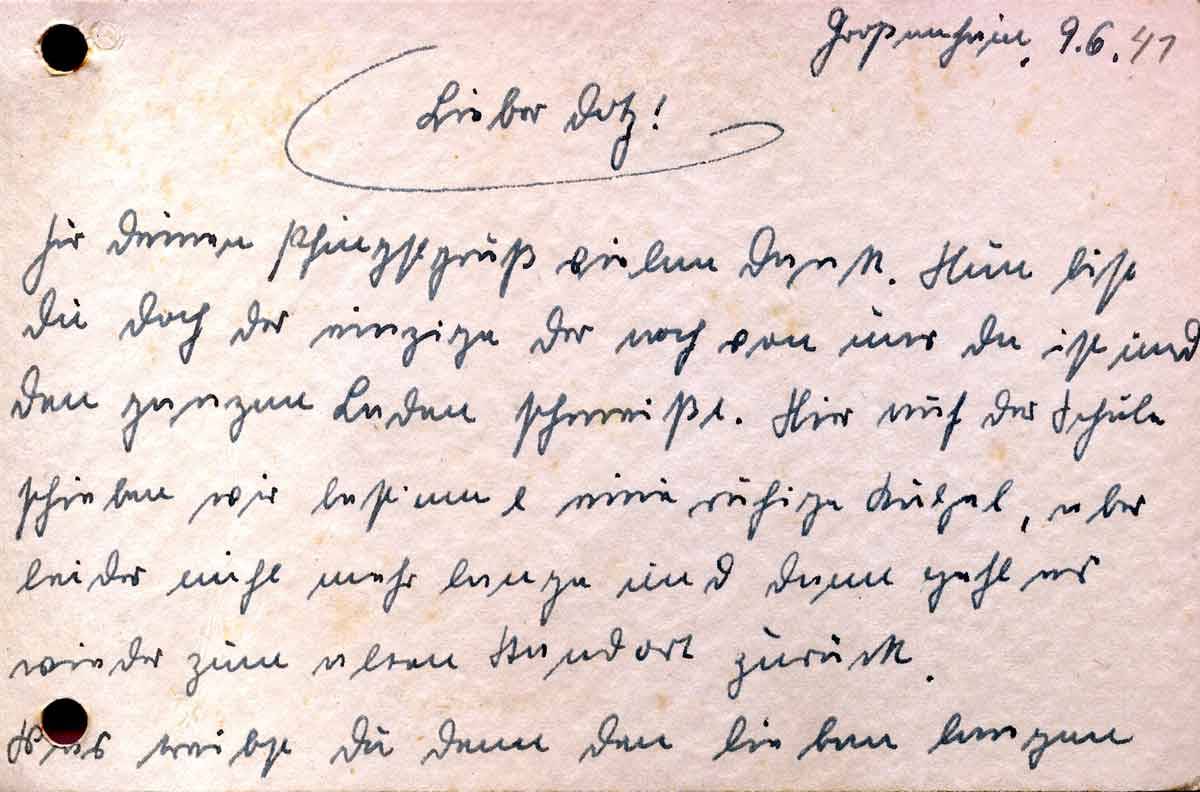 Großenhain, 9.6.41
Lieber Dotz!
Für deinen Pfingstgruß vielen Dank. Nun bist
du doch der einzige der noch von uns da ist und
den ganzen Laden schmeißt. Hier auf der Schule
schieben wir bestimmt eine ruhige Kugel, aber
leider nicht mehr lange und dann geht es
wieder zum alten Standort zurück.
Was treibst du denn den lieben langen